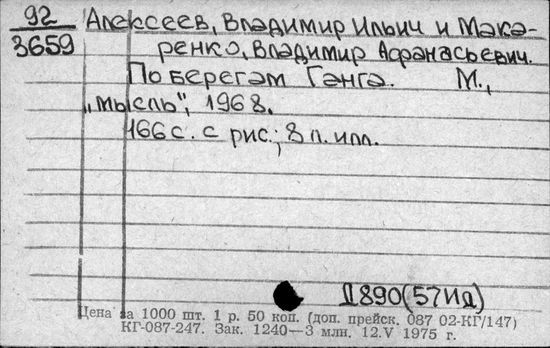 92
3659
Алексеев, Владимир Ильич и Мака-
ренко, Владимир Афанасьевич.
По берегам Ганга. М.,
„Мысль", 1968.
166 с. с рис.; 8 л. илл.
Д890(57Ид)
Цена за 1000 шт. 1 р. 50 коп. (доп. прейск. 087 02-КГ/147)
КГ-087-247. Зак. 1240—3 млн. 12.V 1975 г.